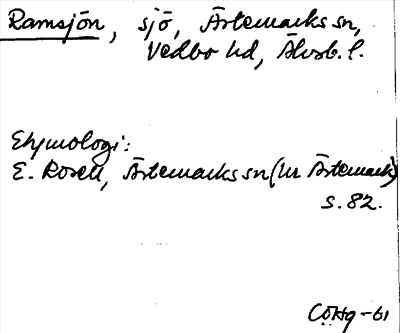 Ramsjön, sjö, Ärtemarks sn,
Vedbo hd, Älvsb. l.
Etymologi:
E. Rosell, Ärtemarks sn (ur Ärtemark)
s. 82.
CÖHg-61